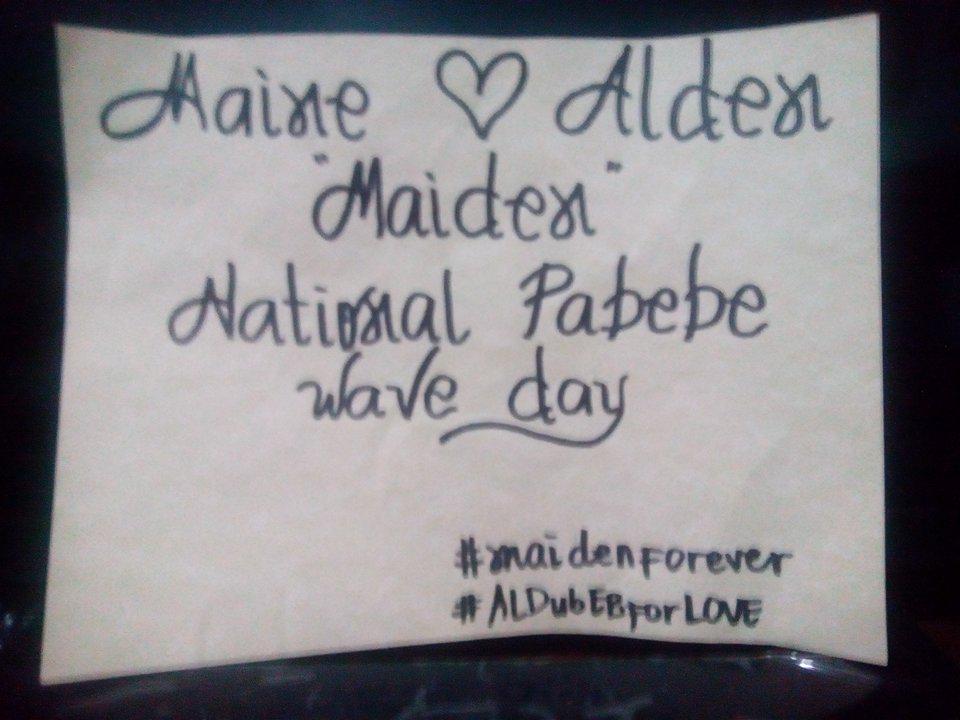 Maine ♡ Alden
"Maiden"
National Pabebe
wave day
#maidenForever
#ALDubEBForLOVE